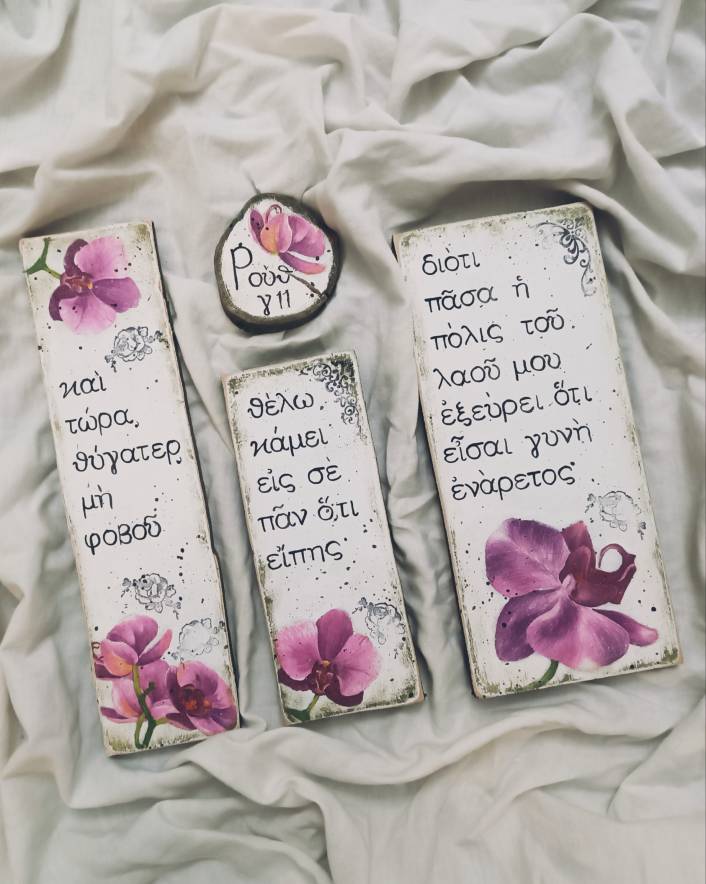 Ρούθ
γ 11
καὶ
τώρα,
θύγατερ,
μὴ
φοβοῦ
θέλω
κάμει
εἰς σὲ
πᾶν ὅ,τι
εἴπης·
διότι
πᾶσα ἡ
πόλις τοῦ
λαοῦ μου
ἐξεύρει ὅτι
εἶσαι γυνὴ
ἐνάρετος·